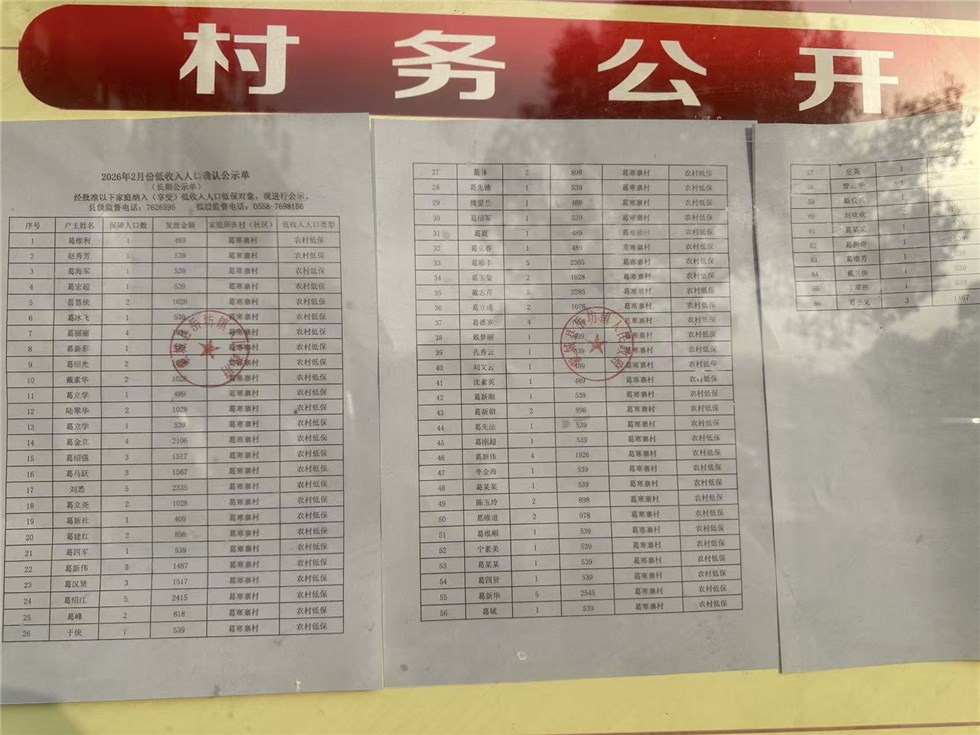 村务公开
2026年2月份低收入人口确认公示单
（长期公示单）
经批准以下家庭纳入（享受）低收入人口低保对象，现进行公示。
县级监督电话：7626595 镇级监督电话：0558-7698156
序号 户主姓名 保障人口数 发放金额 家庭所在村（社区） 低收入人口类型
1 葛维利 1 489 葛寒寨村 农村低保
2 赵秀芳 1 539 葛寒寨村 农村低保
3 葛海军 1 539 葛寒寨村 农村低保
4 葛宏超 1 539 葛寒寨村 农村低保
5 葛慧侠 2 1028 葛寒寨村 农村低保
6 葛冰飞 1 539 葛寒寨村 农村低保
7 葛丽丽 4 葛寒寨村 农村低保
8 葛新彩 农村低保
9 葛绍光 农村低保
10 戴素华 2 1028 葛寒寨村 农村低保
11 葛立学 1 489 葛寒寨村 农村低保
12 陆翠华 2 1028 葛寒寨村 农村低保
13 葛立学 1 539 葛寒寨村 农村低保
14 葛金立 4 2106 葛寒寨村 农村低保
15 葛绍强 3 1517 葛寒寨村 农村低保
16 葛马跃 3 1567 葛寒寨村 农村低保
17 刘悉 5 2335 葛寒寨村 农村低保
18 葛立尧 2 1028 葛寒寨村 农村低保
19 葛新社 1 409 葛寒寨村 农村低保
20 葛建红 2 898 葛寒寨村 农村低保
21 葛四军 1 539 葛寒寨村 农村低保
22 葛新伟 3 1487 葛寒寨村 农村低保
23 葛汉贤 3 1517 葛寒寨村 农村低保
24 葛绍江 5 2415 葛寒寨村 农村低保
25 葛峰 2 818 葛寒寨村 农村低保
26 于侠 1 539 葛寒寨村 农村低保
27 葛体 2 898 葛寒寨村 农村低保
28 葛先锋 1 539 葛寒寨村 农村低保
29 1 葛寒寨村 农村低保
30 葛绍军 1 539 葛寒寨村 农村低保
31 1 489 葛寒寨村 农村低保
32 葛立春 1 489 葛寒寨村 农村低保
33 5 2365 葛寒寨村 农村低保
34 葛玉柴 2 1028 葛寒寨村 农村低保
35 戴志芹 5 2285 葛寒寨村 农村低保
36 2 1078 葛寒寨村 农村低保
37 葛德岁 4 葛寒寨村 农村低保
38 戴梦丽 葛寒寨村 农村低保
39 孔秀云 1 葛寒寨村 农村低保
40 刘文云 1 489 葛寒寨村 农村低保
41 沈素英 1 489 葛寒寨村 农村低保
42 葛新顺 1 539 葛寒寨村 农村低保
43 葛新朝 2 998 葛寒寨村 农村低保
44 葛先法 1 539 葛寒寨村 农村低保
45 葛刚超 1 539 葛寒寨村 农村低保
46 葛新伟 4 1926 葛寒寨村 农村低保
47 李金海 1 539 葛寒寨村 农村低保
48 葛某某 1 539 葛寒寨村 农村低保
49 陈玉玲 2 898 葛寒寨村 农村低保
50 葛维道 2 978 葛寒寨村 农村低保
51 葛维顺 1 539 葛寒寨村 农村低保
52 宁素美 1 539 葛寒寨村 农村低保
53 葛某某 1 539 葛寒寨村 农村低保
54 葛四贤 1 539 葛寒寨村 农村低保
55 葛新华 5 2545 葛寒寨村 农村低保
56 葛斌 1 539 葛寒寨村 农村低保
57 1
58 1
59 1
60
61 葛某某 1
62 葛新奇 1
63 葛维芳 1
64 戴三侠 1
65 1
66 3